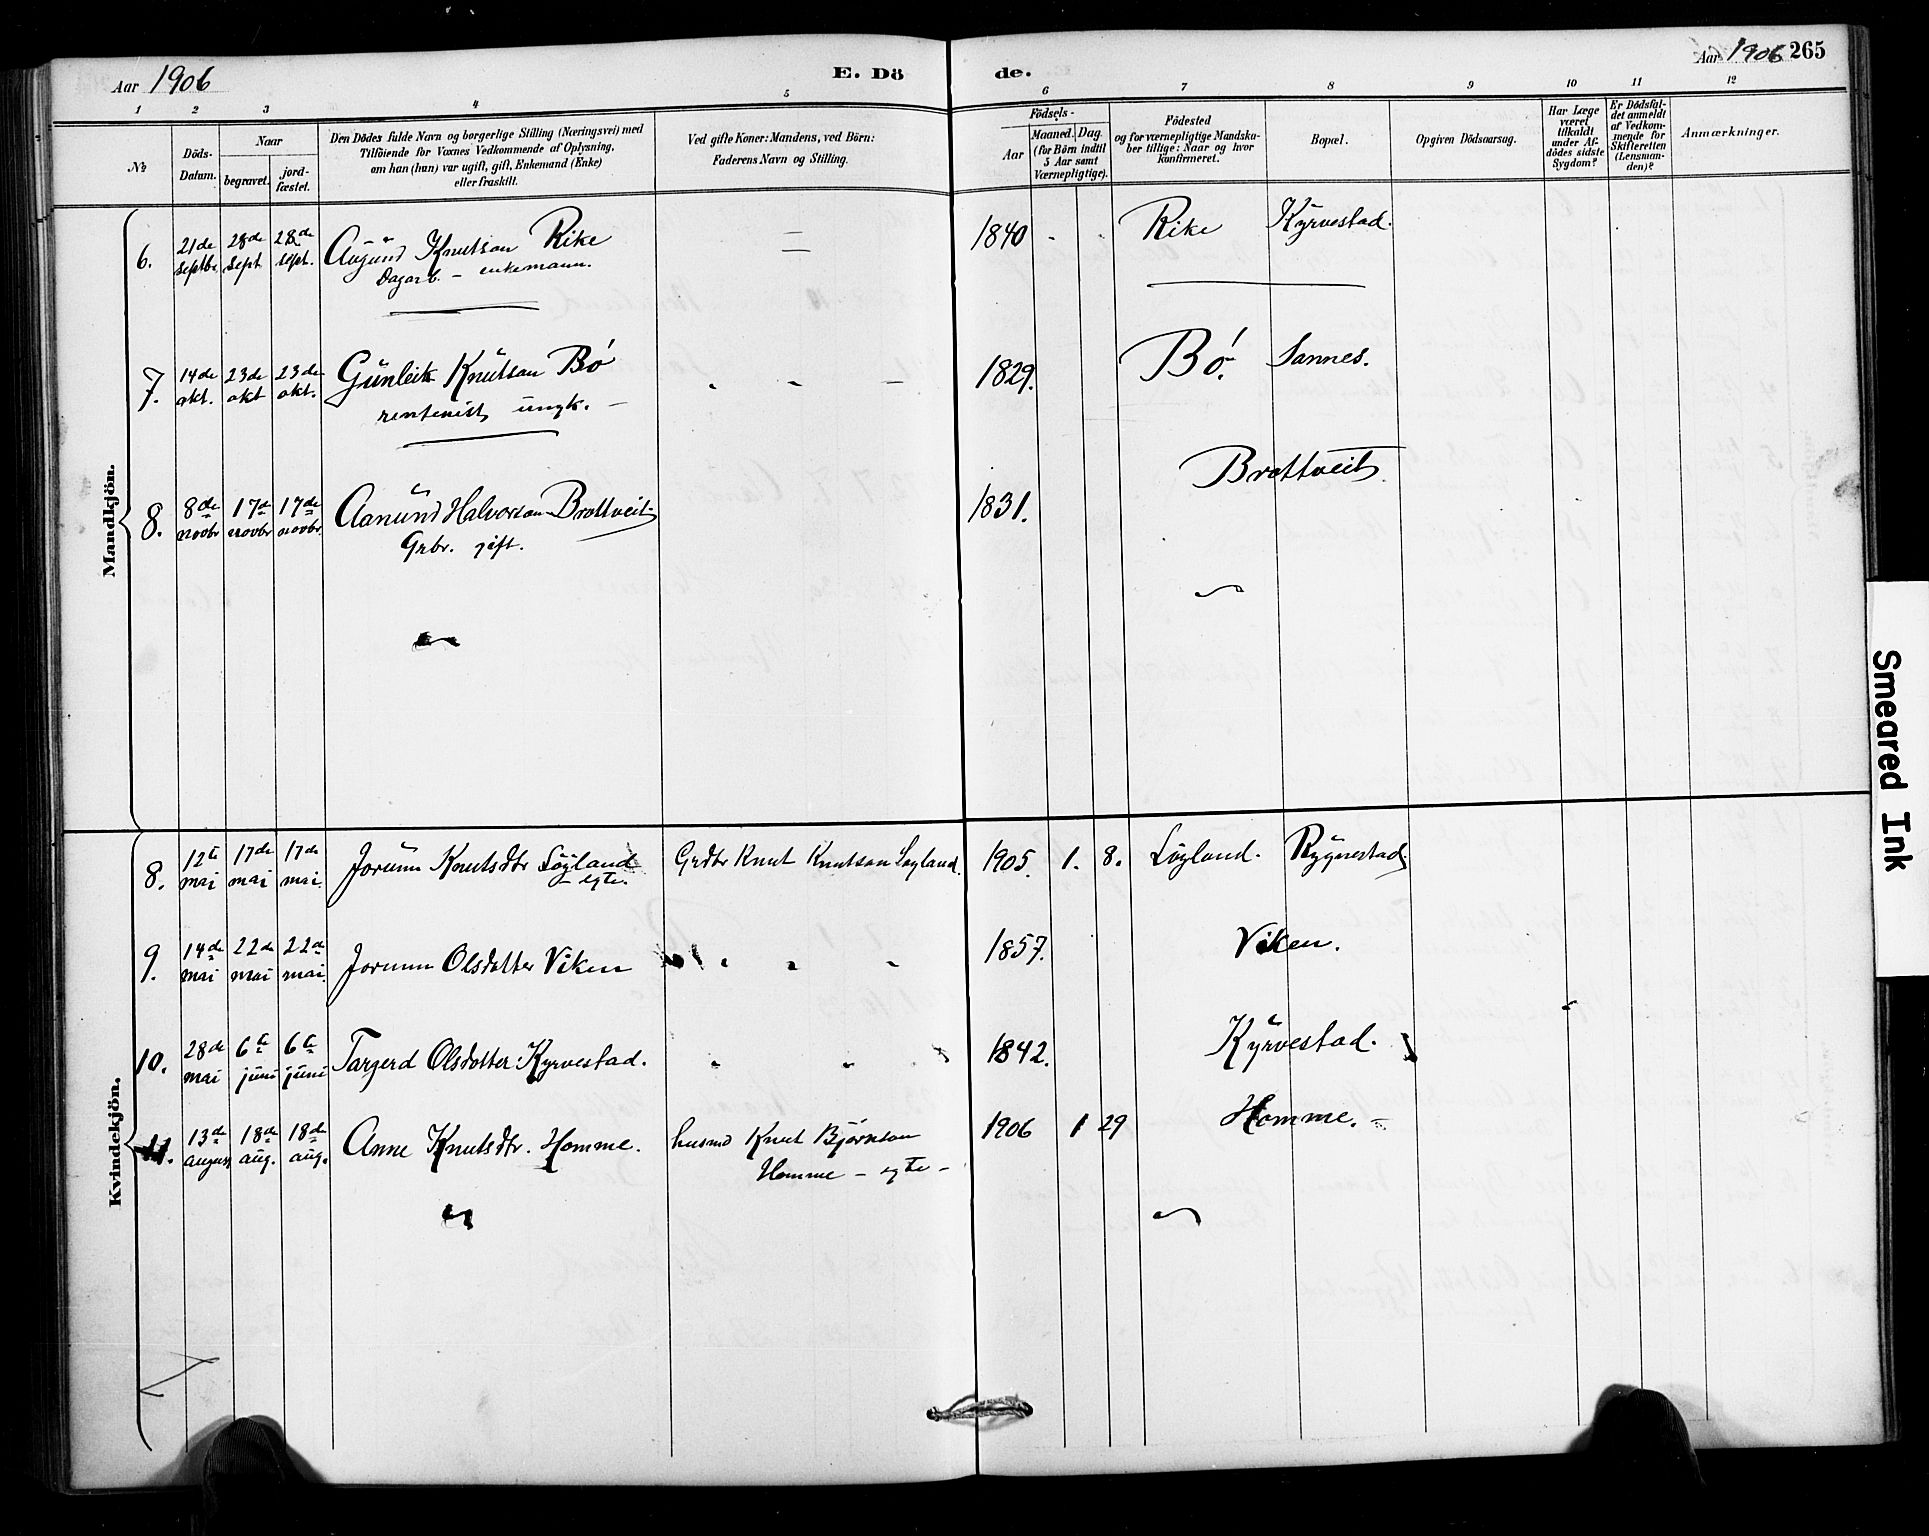 Aar 1906
E. Dö
de.
Aar 1906 265
1 2 3 4 5 6 7 8 9 10 11 12
No
Döds-
Datum.
Naar
begravet.
jord-
fæstet.
Den Dödes fulde Navn og borgerlige Stilling (Næringsvei) med
Tilföiende for Voxnes Vedkommende af Oplysning,
om han (hun) var ugift, gift, Enkemand (Enke)
eller fraskilt.
Ved gifte Koner: Mandens, ved Börn:
Faderens Navn og Stilling.
Födsels-
Aar
Maaned. Dag.
(for Börn indtil
5 Aar samt
Værnepligtige).
Födested
og for værnepligtige Mandska-
ber tillige: Naar og hvor
konfirmeret.
Bopæl.
Opgiven Dödsaarsag.
Har Læge
været
tilkaldt
under Af-
dödes sidste
Sygdom?
Er Dödsfal-
det anmeldt
af Vedkom-
mende for
Skifteretten
(Lensman-
den)?
Anmærkninger.
Mandkjön.
6. 21de septbr 28de sept 28de sept. Augund Knutson Rike 1840 Rike Kyrvestad.
Dagarb. – enkemann.
7. 14de okt. 23de okt 23de okt. Gunleik Knutson Bó 1829. Bó. Sannes.
rentenist, ungk. –
8. 8de novbr 17de novbr 17de novbr. Aanund Halvorson Brottveit 1831. Brottveit.
Grbr. gift.
Kvindekjön.
8. 12te mai 17de mai 17de mai. Jorunn Knutsdtr Löyland Grdbr Knut Knutson Loyland. 1905. 1. 8. Löyland. Rygnestad.
– egte.
9. 14de mai 22de mai 22de mai. Jorunn Olsdotter Viken 1857. Viken.
10. 28de mai 6te juni 6te juni Targerd Olsdotter Kyrvestad. 1842. Kyrvestad.
11. 13de august 18de aug. 18de aug. Anne Knutsdtr. Homme. husmd Knut Bjørnson 1906 1 29 Homme. –
Homme – egte –
Smeared Ink